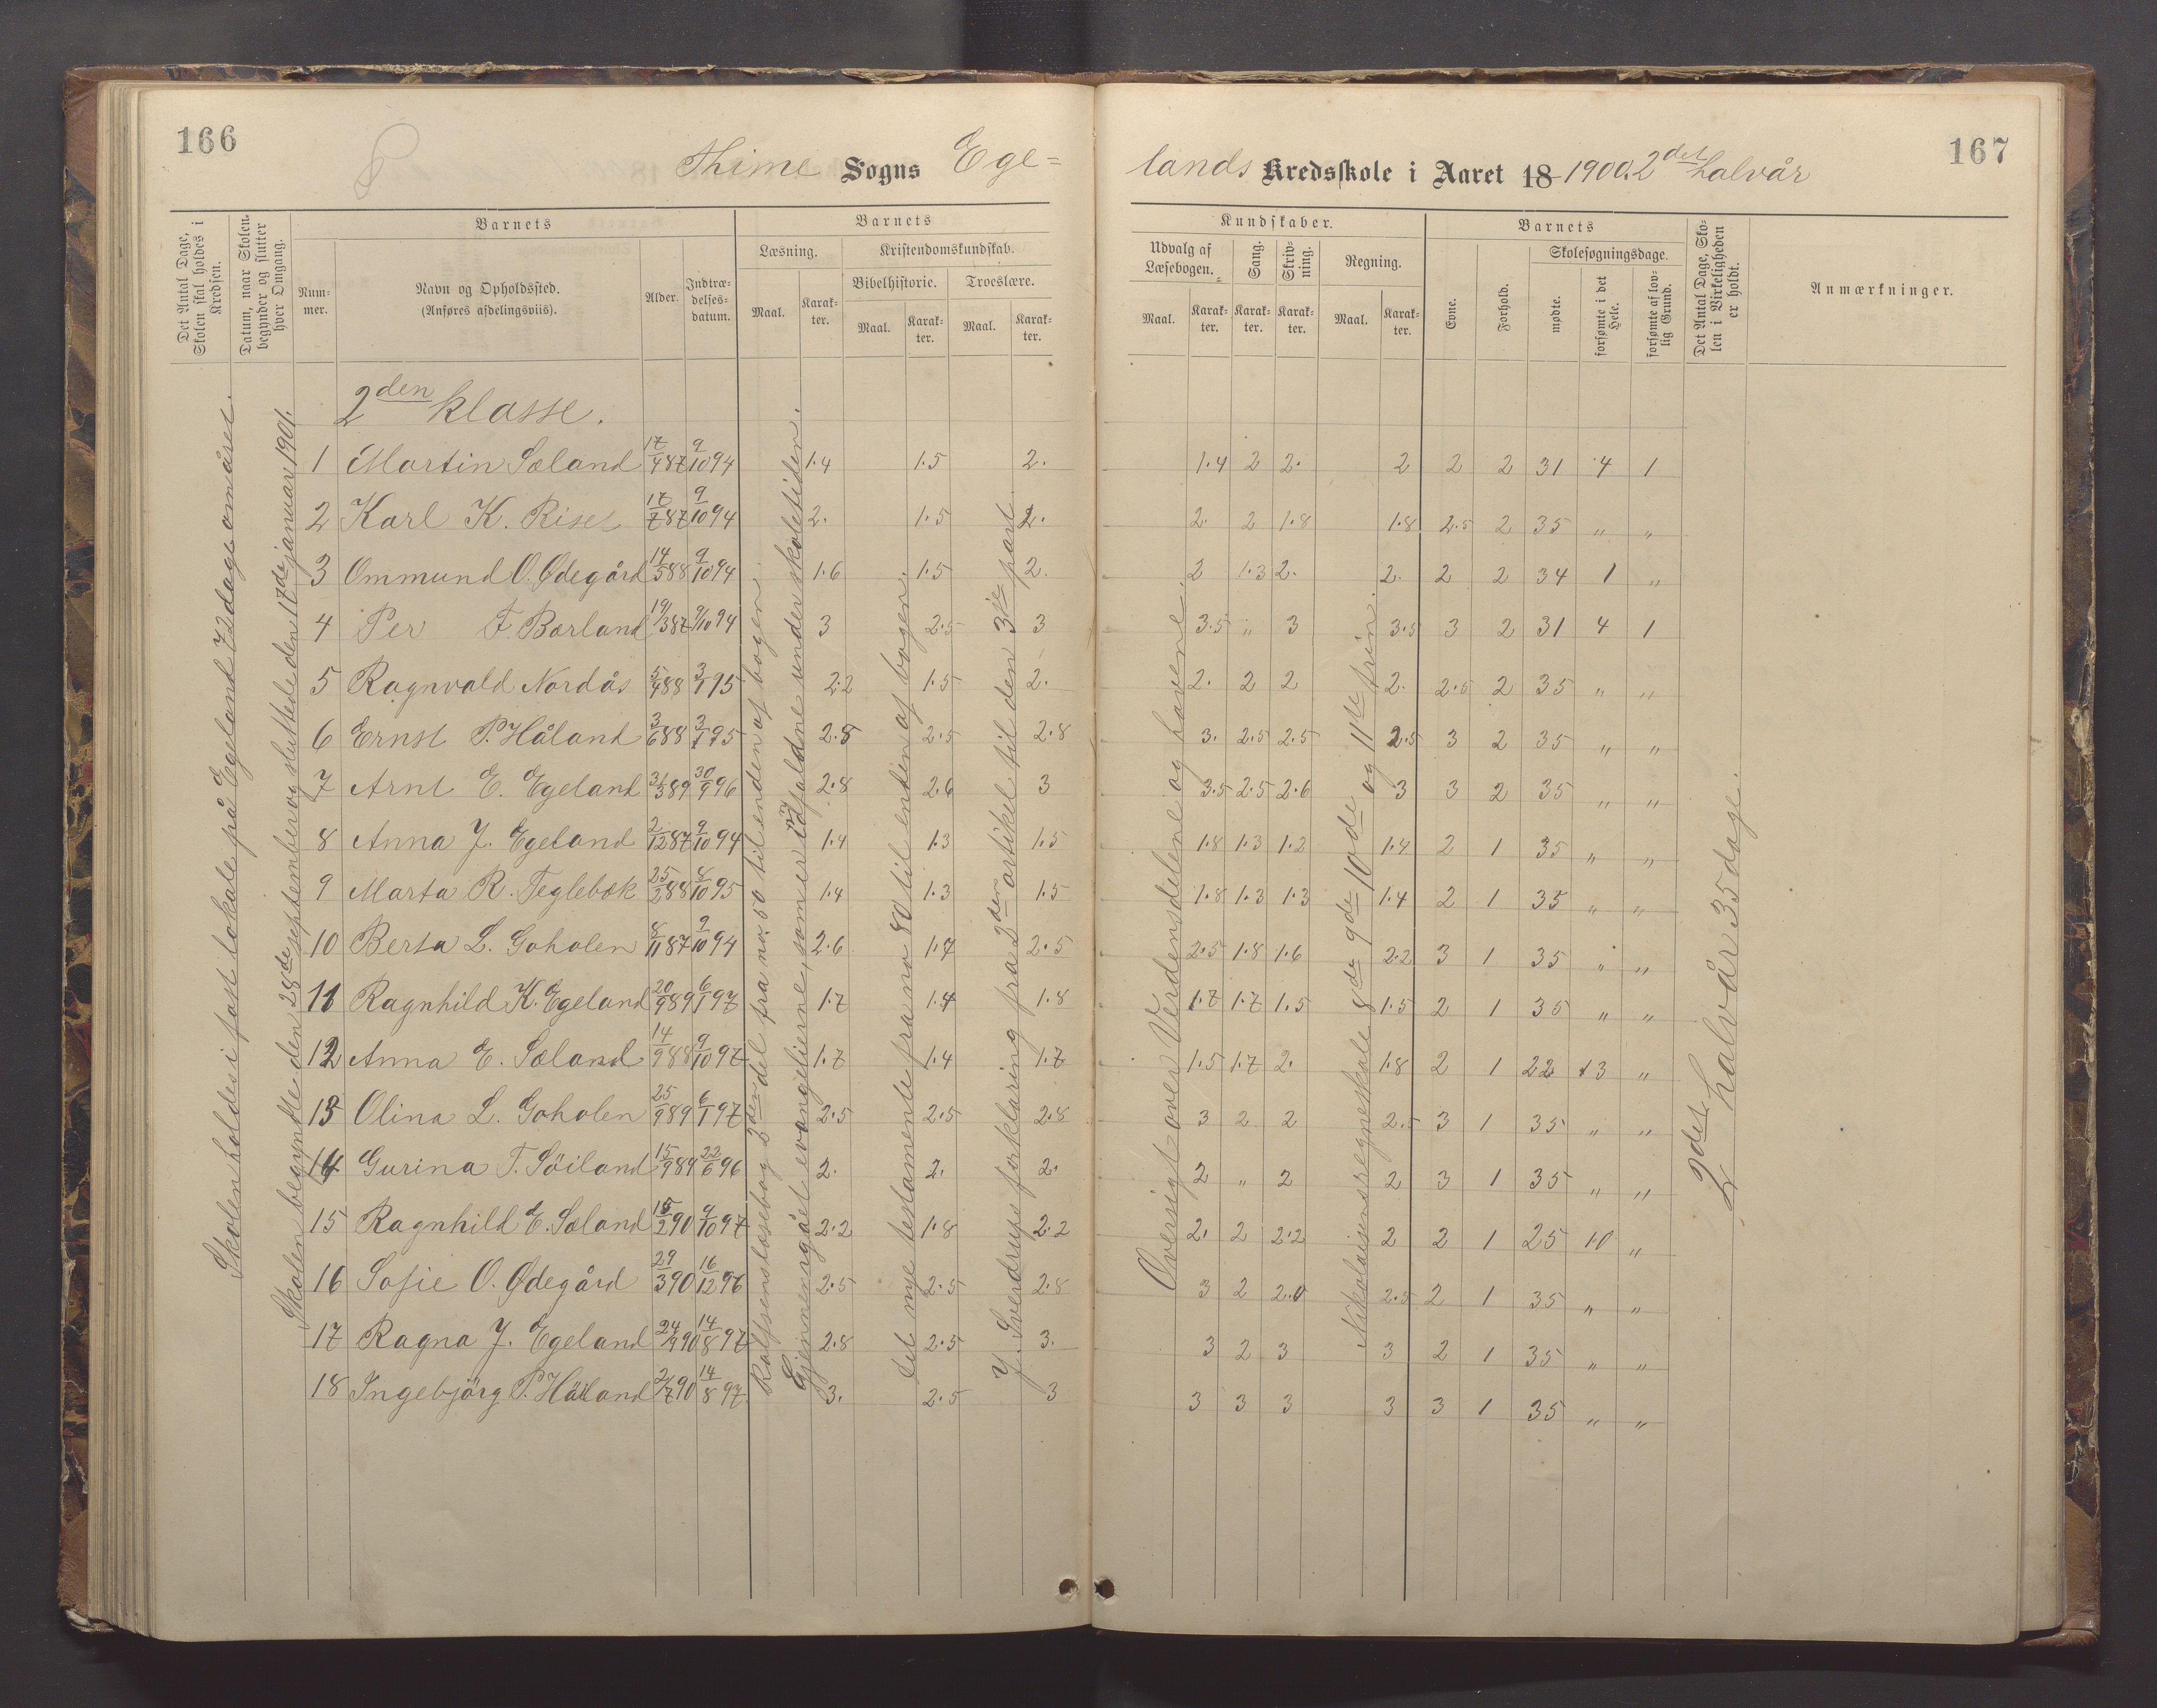 166
Thime Sogns Ege=
lands Kredsskole i Aaret 18 1900. 2det halvår
167
Det Antal Dage, Skolen skal holdes i Kredsen.
Datum, naar Skolen begynder og slutter hver Omgang.
Barnets
Num-mer.
Navn og Opholdssted.
(Anføres afdelingsviis).
Alder.
Indtræ-delses-datum.
Barnets
Læsning.
Maal.
Karak-ter.
Kristendomskundskab.
Bibelhistorie.
Maal.
Karak-ter.
Troeslære.
Maal.
Karak-ter.
Kundskaber.
Udvalg af Læsebogen.
Maal.
Karak-ter.
Sang.
Karak-ter.
Skriv-ning.
Karak-ter.
Regning.
Maal.
Karak-ter.
Barnets
Evne.
Forhold.
Skolesøgningsdage.
mødte.
forsømte i det Hele.
forsømte af lov-lig Grund.
Det Antal Dage, Sko-len i Virkeligheden er holdt.
Anmærkninger.
Skolen holdes i fast lokale på Egeland 72 dage om året.
Skolen begyndte den 28de september og sluttede den 17de januar 1901.
Rolfsens læsebog 2den del fra no. 50 til enden af bogen.
Gjennemgået evangelierne, som er indfaldne under skoletiden.
Det nye testamente fra no 80 til enden af bogen.
J. Sverdrups forklaring fra 2den artikel til den 3die part.
Oversigt over Verdensdelene og havene.
Nikolaisens regneskole 8de 9de 10de og 11te trin.
2det halvår 35 dage.
2den klasse.
1 Martin Sæland 17/4 87 9/10 94 1.4 1.5 2. 1.4 2 2. 2 2 2 31 4 1
2 Karl K. Riset 17/7 87 9/10 94 2. 1.5 2. 2. 2 1.8 1.8 2.5 2 35 " "
3 Ommund O. Ødegård 14/5 88 9/10 94 1.6 1.5 2. 2 1.3 2. 2. 2 2 34 1 "
4 Per F. Børland 19/3 87 9/10 94 3 2.5 3 3.5 " 3 3.5 3 2 31 4 1
5 Ragnvald Nordås 5/4 88 3/1 95 2.2 1.5 2. 2. 2 2 2. 2.5 2 35 " "
6 Ernst P. Håland 3/6 88 3/1 95 2.8 2.5 2.8 3. 2.5 2.5 2.5 3 2 35 " "
7 Arnt E. Egeland 31/3 89 30/9 96 2.8 2.6 3 3.5 2.5 2.6 3 3 2 35 " "
8 Anna J. Egeland 2/12 87 9/10 94 1.4 1.3 1.5 1.8 1.3 1.2 1.4 2 1 35 " "
9 Marta R. Teglebæk 25/2 88 8/10 95 1.4 1.3 1.5 1.8 1.3 1.3 1.4 2 1 35 " "
10 Berta L. Goholen 8/11 87 9/10 94 2.6 1.7 2.5 2.5 1.8 1.6 2.2 3 1 35 " "
11 Ragnhild K. Egeland 20/9 89 6/1 97 1.7 1.4 1.8 1.7 1.7 1.5 1.5 2 1 35 " "
12 Anna E. Sæland 14/9 88 9/10 97 1.7 1.4 1.7 1.5 1.7 2. 1.8 2 1 22 13 "
13 Olina L. Goholen 25/9 89 6/1 97 2.5 2.5 2.8 3 2 2 2.5 3 1 35 " "
14 Gurina T. Söiland 15/9 89 22/6 96 2. 2. 2. 2 " 2 2 3 1 35 " "
15 Ragnhild E. Sæland 15/2 90 9/10 97 2.2 1.8 2.2 2. 2 2.2 2 2 1 25 10 "
16 Sofie O. Ødegård 29/3 90 16/12 96 2.5 2.5 2.8 3 2 2.0 2.5 2 1 35 " "
17 Ragna J. Egeland 24/9 90 14/8 97 2.8 2.5 3. 3 2 3 3 2 1 35 " "
18 Ingebjörg P. Håland 2/7 90 14/8 97 3. 2.5 3 3 3 3 3 3 1 35 " "